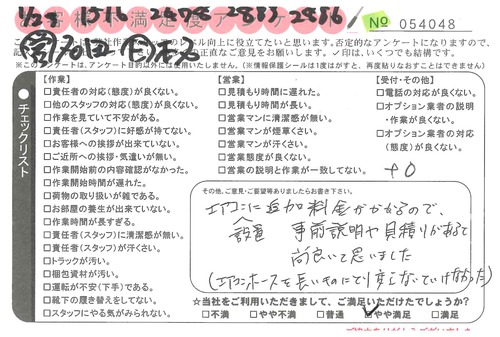 1/28
No 054048
このアンケートは、作業目的以外には使用いたしません。(※情報保護シールは1度はがすと、再度貼りなおすことはできません)
チェックリスト
【作業】
□責任者の対応(態度)が良くない。
□他のスタッフの対応(態度)が良くない。
□作業を見ていて不安がある。
□責任者(スタッフ)に好感が持てない。
□お客様への挨拶が出来ていない。
□ご近所への挨拶・気遣いが無い。
□作業開始前の内容確認がなかった。
□作業開始時間が遅れた。
□荷物の取り扱いが雑である。
□お部屋の養生が出来ていない。
□作業時間が長すぎる。
□責任者(スタッフ)に清潔感が無い。
□責任者(スタッフ)が汗くさい。
□トラックが汚い。
□梱包資材が汚い。
□運転が不安(下手)である。
□靴下の履き替えをしてない。
□スタッフにやる気がみられない。
【営業】
□見積もり時間に遅れた。
□見積もり時間が長い。
□営業マンに清潔感が無い。
□営業マンが煙草くさい。
□営業マンが汗くさい。
□営業態度が良くない。
□営業の説明と作業が一致してない。
【受付・その他】
□電話の対応が良くない。
□オプション業者の説明
・作業が良くない。
□オプション業者の対応
(態度)が良くない。
+0
その他、ご意見・ご要望等ありましたらお書き下さい。
エアコンに追加料金がかかるので、
設置 事前説明や見積りがあると
尚良いと思いました
(エアコンホースを長いものに
☆当社をご利用いただきまして、ご満足いただけたでしょうか?
□不満 □やや不満 □普通 ☑やや満足 □満足